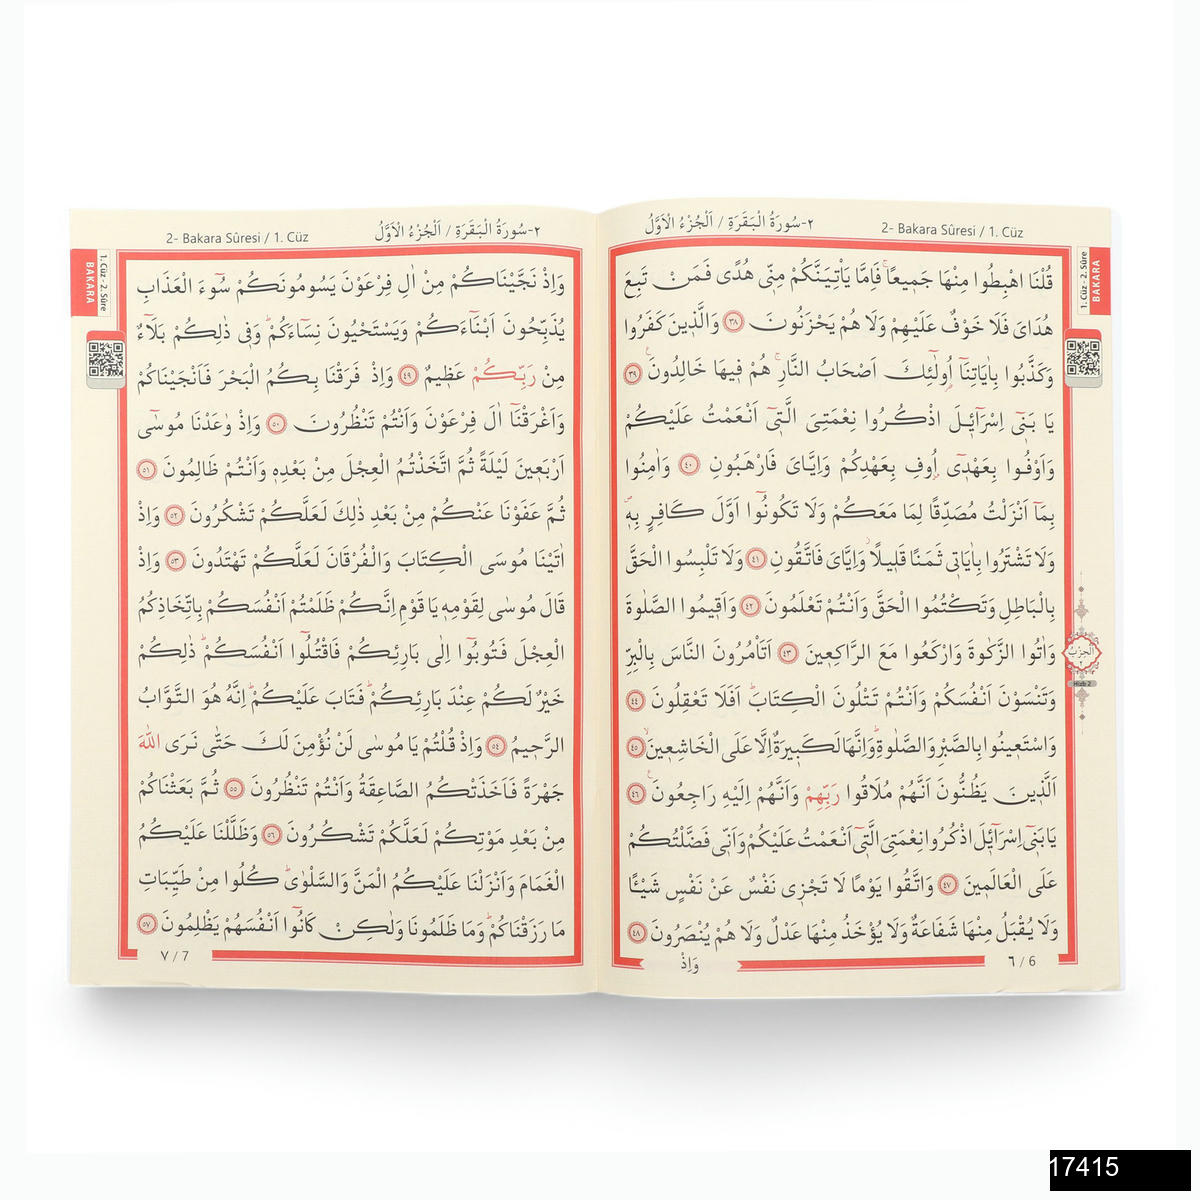 ٢-سُورَةُ الْبَقَرَةِ / اَلْجُزْءُ الْاَوَّلُ
2- Bakara Sûresi / 1. Cüz
1. Cüz - 2. Sûre
BAKARA
قُلْنَا اهْبِطُوا مِنْهَا جَمٖيعًاۚ فَاِمَّا يَأْتِيَنَّكُمْ مِنّٖى هُدًى فَمَنْ تَبِعَ
هُدَاىَ فَلَا خَوْفٌ عَلَيْهِمْ وَلَا هُمْ يَحْزَنُونَ ﴿٣٨﴾ وَالَّذٖينَ كَفَرُوا
وَكَذَّبُوا بِاٰيَاتِنَٓا اُو۬لٰٓئِكَ اَصْحَابُ النَّارِۚ هُمْ فٖيهَا خَالِدُونَ ﴿٣٩﴾
يَا بَنٖٓى اِسْرَٓائٖلَ اذْكُرُوا نِعْمَتِىَ الَّتٖٓى اَنْعَمْتُ عَلَيْكُمْ
وَاَوْفُوا بِعَهْدٖٓى اُو۫فِ بِعَهْدِكُمْ وَاِيَّاىَ فَارْهَبُونِ ﴿٤٠﴾ وَاٰمِنُوا
بِمَٓا اَنْزَلْتُ مُصَدِّقًا لِمَا مَعَكُمْ وَلَا تَكُونُٓوا اَوَّلَ كَافِرٍ بِهٖۖ
وَلَا تَشْتَرُوا بِاٰيَاتٖى ثَمَنًا قَلٖيلًاۘ وَاِيَّاىَ فَاتَّقُونِ ﴿٤١﴾ وَلَا تَلْبِسُوا الْحَقَّ
بِالْبَاطِلِ وَتَكْتُمُوا الْحَقَّ وَاَنْتُمْ تَعْلَمُونَ ﴿٤٢﴾ وَاَقٖيمُوا الصَّلٰوةَ
وَاٰتُوا الزَّكٰوةَ وَارْكَعُوا مَعَ الرَّاكِعٖينَ ﴿٤٣﴾ اَتَأْمُرُونَ النَّاسَ بِالْبِرِّ
وَتَنْسَوْنَ اَنْفُسَكُمْ وَاَنْتُمْ تَتْلُونَ الْكِتَابَؕ اَفَلَا تَعْقِلُونَ ﴿٤٤﴾
وَاسْتَعٖينُوا بِالصَّبْرِ وَالصَّلٰوةِؕ وَاِنَّهَا لَكَبٖيرَةٌ اِلَّا عَلَى الْخَاشِعٖينَۙ ﴿٤٥﴾
اَلَّذٖينَ يَظُنُّونَ اَنَّهُمْ مُلَاقُوا رَبِّهِمْ وَاَنَّهُمْ اِلَيْهِ رَاجِعُونَۚ ﴿٤٦﴾
يَا بَنٖٓى اِسْرَٓائٖلَ اذْكُرُوا نِعْمَتِىَ الَّتٖٓى اَنْعَمْتُ عَلَيْكُمْ وَاَنّٖى فَضَّلْتُكُمْ
عَلَى الْعَالَمٖينَ ﴿٤٧﴾ وَاتَّقُوا يَوْمًا لَا تَجْزٖى نَفْسٌ عَنْ نَفْسٍ شَيْـًٔا
وَلَا يُقْبَلُ مِنْهَا شَفَاعَةٌ وَلَا يُؤْخَذُ مِنْهَا عَدْلٌ وَلَا هُمْ يُنْصَرُونَ ﴿٤٨﴾
اَلْحِزْبُ
٢
Hizb 2
وَاِذْ
٦ / 6
2- Bakara Sûresi / 1. Cüz
٢-سُورَةُ الْبَقَرَةِ / اَلْجُزْءُ الْاَوَّلُ
1. Cüz - 2. Sûre
BAKARA
وَاِذْ نَجَّيْنَاكُمْ مِنْ اٰلِ فِرْعَوْنَ يَسُومُونَكُمْ سُٓوءَ الْعَذَابِ
يُذَبِّحُونَ اَبْنَٓاءَكُمْ وَيَسْتَحْيُونَ نِسَٓاءَكُمْؕ وَفٖى ذٰلِكُمْ بَلَٓاءٌ
مِنْ رَبِّكُمْ عَظٖيمٌ ﴿٤٩﴾ وَاِذْ فَرَقْنَا بِكُمُ الْبَحْرَ فَاَنْجَيْنَاكُمْ
وَاَغْرَقْنَٓا اٰلَ فِرْعَوْنَ وَاَنْتُمْ تَنْظُرُونَ ﴿٥٠﴾ وَاِذْ وٰعَدْنَا مُوسٰٓى
اَرْبَعٖينَ لَيْلَةً ثُمَّ اتَّخَذْتُمُ الْعِجْلَ مِنْ بَعْدِهٖ وَاَنْتُمْ ظَالِمُونَ ﴿٥١﴾
ثُمَّ عَفَوْنَا عَنْكُمْ مِنْ بَعْدِ ذٰلِكَ لَعَلَّكُمْ تَشْكُرُونَ ﴿٥٢﴾ وَاِذْ
اٰتَيْنَا مُوسَى الْكِتَابَ وَالْفُرْقَانَ لَعَلَّكُمْ تَهْتَدُونَ ﴿٥٣﴾ وَاِذْ
قَالَ مُوسٰى لِقَوْمِهٖ يَا قَوْمِ اِنَّكُمْ ظَلَمْتُمْ اَنْفُسَكُمْ بِاتِّخَاذِكُمُ
الْعِجْلَ فَتُوبُٓوا اِلٰى بَارِئِكُمْ فَاقْتُلُٓوا اَنْفُسَكُمْؕ ذٰلِكُمْ
خَيْرٌ لَكُمْ عِنْدَ بَارِئِكُمْؕ فَتَابَ عَلَيْكُمْؕ اِنَّهُ هُوَ التَّوَّابُ
الرَّحٖيمُ ﴿٥٤﴾ وَاِذْ قُلْتُمْ يَا مُوسٰى لَنْ نُؤْمِنَ لَكَ حَتّٰى نَرَى اللّٰهَ
جَهْرَةً فَاَخَذَتْكُمُ الصَّاعِقَةُ وَاَنْتُمْ تَنْظُرُونَ ﴿٥٥﴾ ثُمَّ بَعَثْنَاكُمْ
مِنْ بَعْدِ مَوْتِكُمْ لَعَلَّكُمْ تَشْكُرُونَ ﴿٥٦﴾ وَظَلَّلْنَا عَلَيْكُمُ
الْغَمَامَ وَاَنْزَلْنَا عَلَيْكُمُ الْمَنَّ وَالسَّلْوٰىؕ كُلُوا مِنْ طَيِّبَاتِ
مَا رَزَقْنَاكُمْؕ وَمَا ظَلَمُونَا وَلٰكِنْ كَانُٓوا اَنْفُسَهُمْ يَظْلِمُونَ ﴿٥٧﴾
٧ / 7
17415